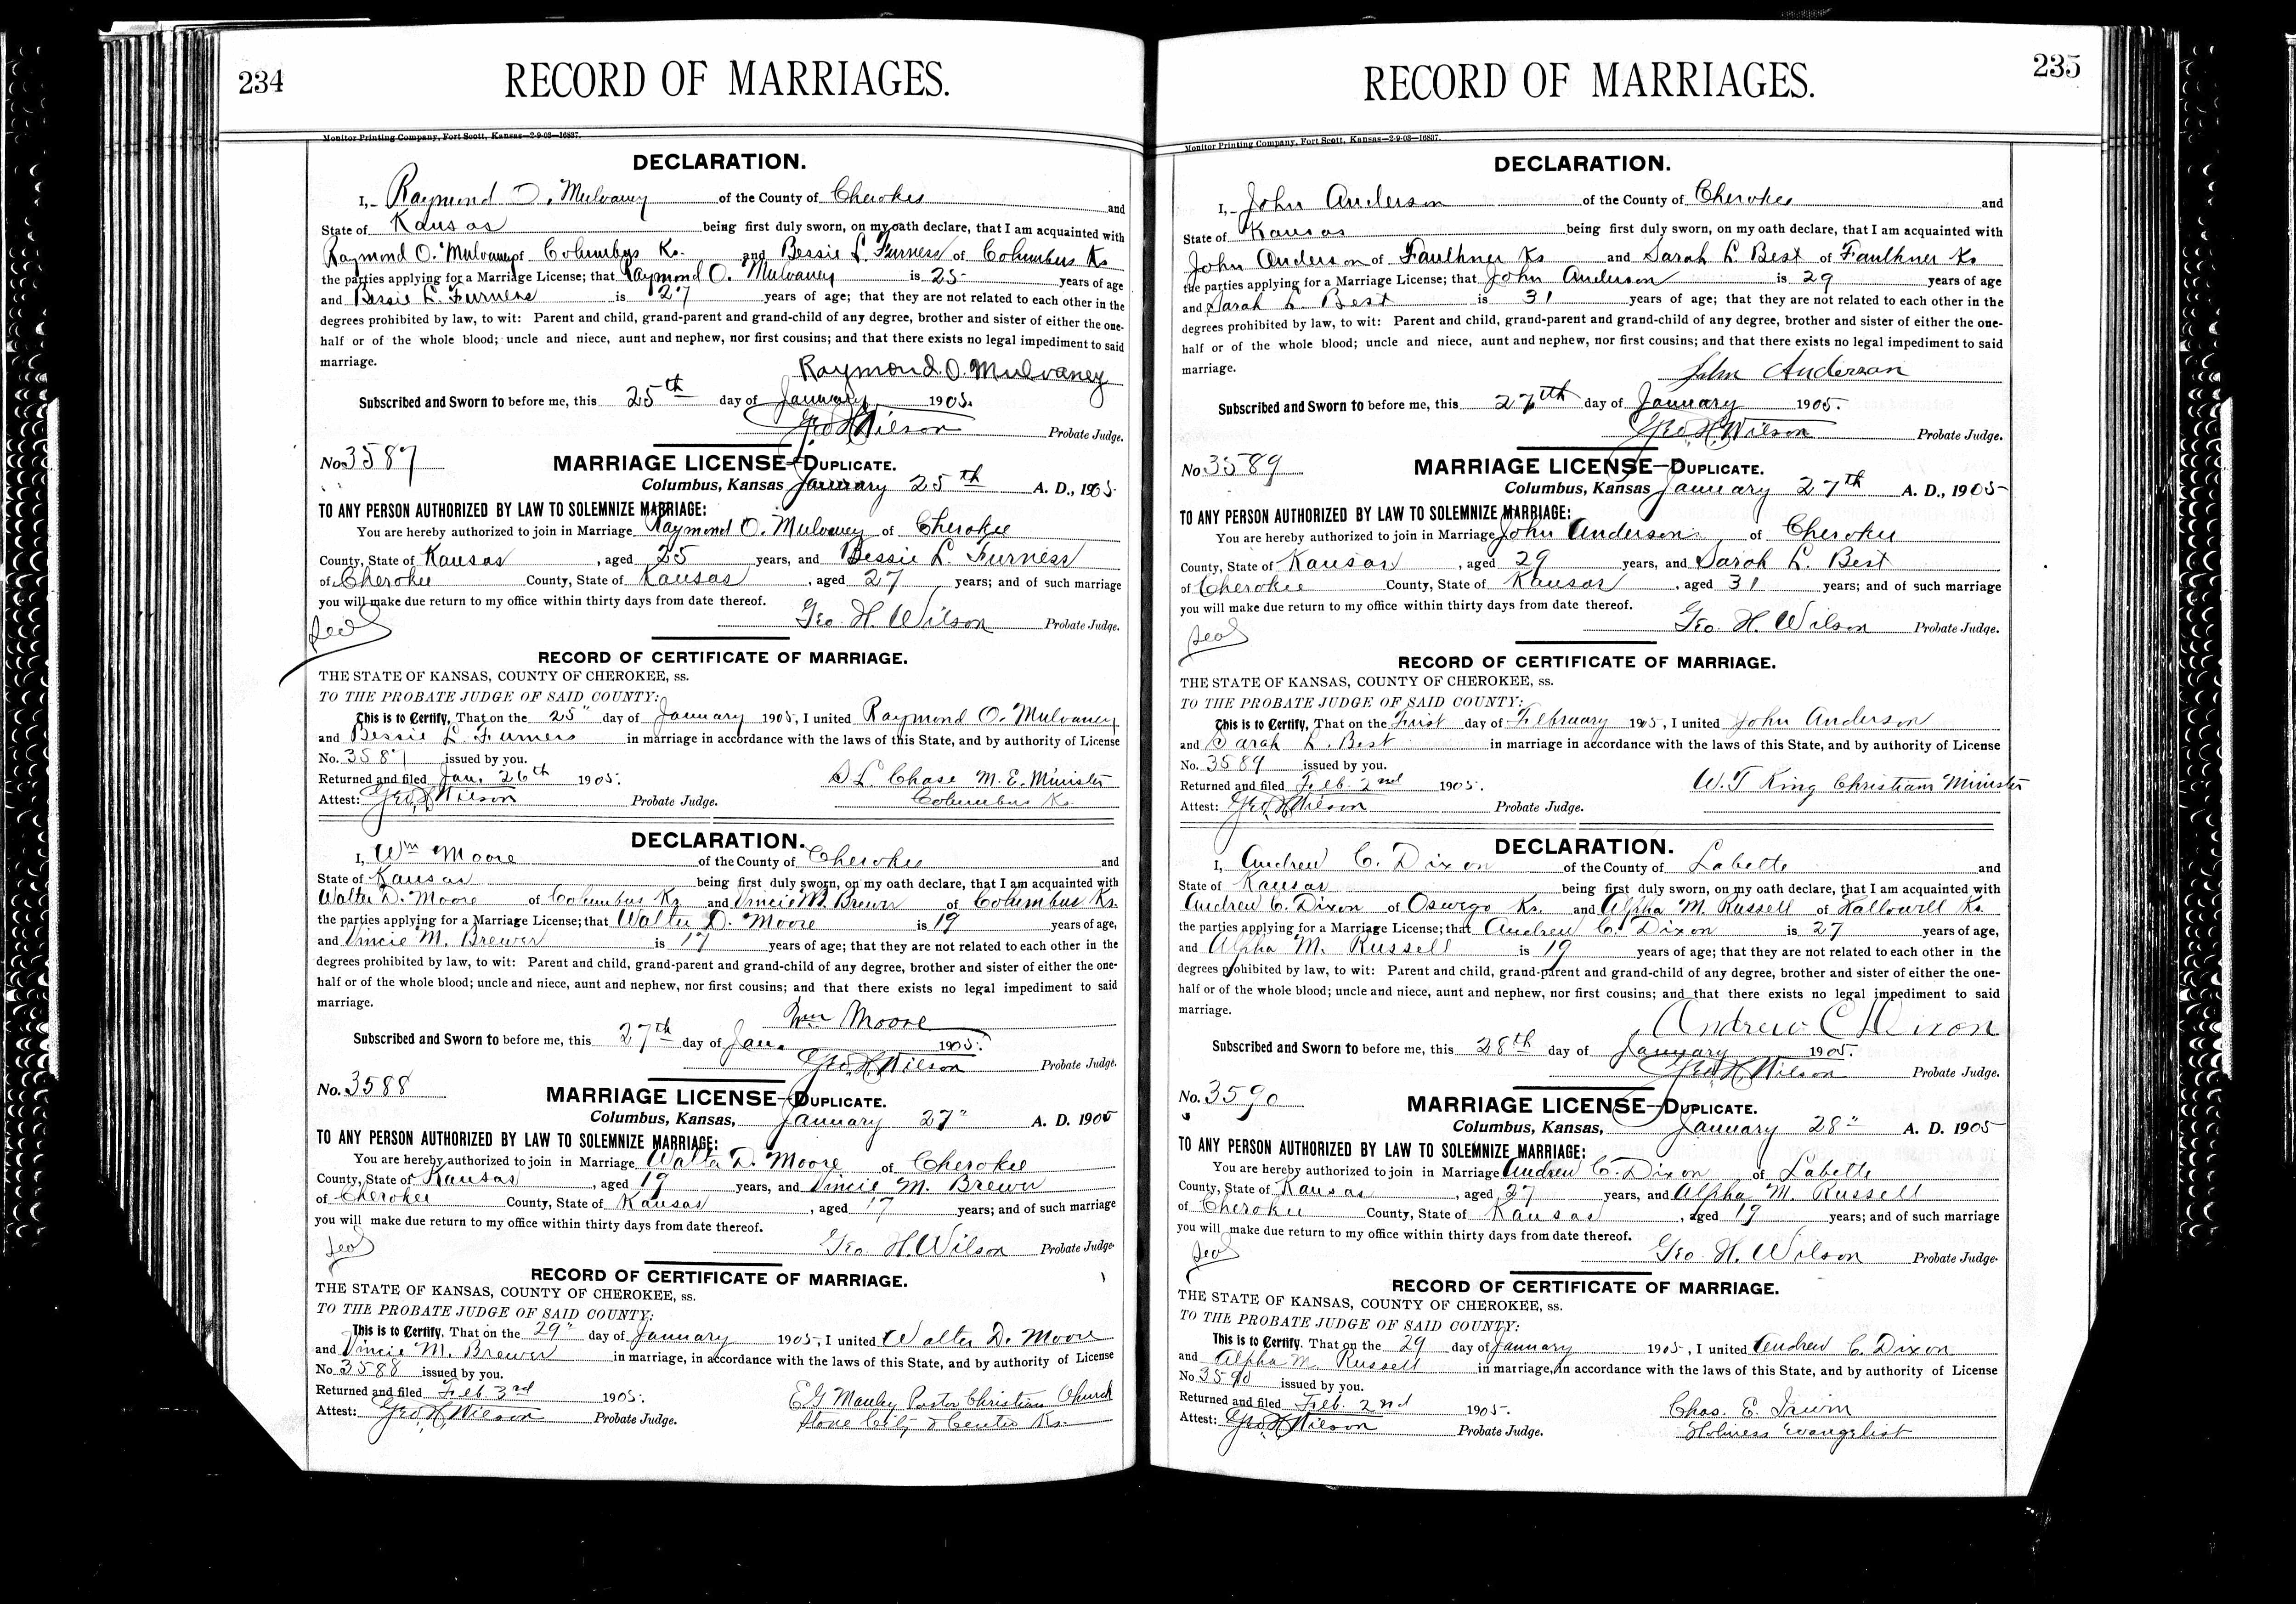 234
RECORD OF MARRIAGES.
Monitor Printing Company, Fort Scott, Kansas—2-9-03—16837.
DECLARATION.
I, Raymond O. Mulvaney of the County of Cherokee and
State of Kansas being first duly sworn, on my oath declare, that I am acquainted with
Raymond O. Mulvaney of Columbus Ks. and Bessie L. Furness of Columbus Ks
the parties applying for a Marriage License; that Raymond O. Mulvaney is 25 years of age
and Bessie L. Furness is 27 years of age; that they are not related to each other in the
degrees prohibited by law, to wit: Parent and child, grand-parent and grand-child of any degree, brother and sister of either the one-
half or of the whole blood; uncle and niece, aunt and nephew, nor first cousins; and that there exists no legal impediment to said
marriage.
Raymond O. Mulvaney
Subscribed and Sworn to before me, this 25th day of January 1905.
Geo. H. Wilson Probate Judge.
No. 3587 MARRIAGE LICENSE—DUPLICATE.
Columbus, Kansas January 25th A. D., 1905.
TO ANY PERSON AUTHORIZED BY LAW TO SOLEMNIZE MARRIAGE:
You are hereby authorized to join in Marriage Raymond O. Mulvaney of Cherokee
County, State of Kansas, aged 25 years, and Bessie L. Furness
of Cherokee County, State of Kansas, aged 27 years; and of such marriage
you will make due return to my office within thirty days from date thereof.
Seal Geo. H. Wilson Probate Judge.
RECORD OF CERTIFICATE OF MARRIAGE.
THE STATE OF KANSAS, COUNTY OF CHEROKEE, ss.
TO THE PROBATE JUDGE OF SAID COUNTY:
This is to Certify, That on the 25" day of January 1905, I united Raymond O. Mulvaney
and Bessie L. Furness in marriage in accordance with the laws of this State, and by authority of License
No. 3587 issued by you.
Returned and filed Jan. 26th 1905. S L. Chase M. E. Minister
Attest: Geo. H. Wilson Probate Judge. Columbus Ks.
DECLARATION.
I, Wm Moore of the County of Cherokee and
State of Kansas being first duly sworn, on my oath declare, that I am acquainted with
Walter D. Moore of Columbus Ks. and Vincie M. Brewer of Columbus Ks.
the parties applying for a Marriage License; that Walter D. Moore is 19 years of age,
and Vincie M. Brewer is 17 years of age; that they are not related to each other in the
degrees prohibited by law, to wit: Parent and child, grand-parent and grand-child of any degree, brother and sister of either the one-
half or of the whole blood; uncle and niece, aunt and nephew, nor first cousins; and that there exists no legal impediment to said
marriage.
Wm Moore
Subscribed and Sworn to before me, this 27th day of Jan. 1905.
Geo. H. Wilson Probate Judge.
No. 3588 MARRIAGE LICENSE—DUPLICATE.
Columbus, Kansas, January 27" A. D. 1905
TO ANY PERSON AUTHORIZED BY LAW TO SOLEMNIZE MARRIAGE:
You are hereby authorized to join in Marriage Walter D. Moore of Cherokee
County, State of Kansas, aged 19 years, and Vincie M. Brewer
of Cherokee County, State of Kansas, aged 17 years; and of such marriage
you will make due return to my office within thirty days from date thereof.
Seal Geo. H. Wilson Probate Judge.
RECORD OF CERTIFICATE OF MARRIAGE.
THE STATE OF KANSAS, COUNTY OF CHEROKEE, ss.
TO THE PROBATE JUDGE OF SAID COUNTY:
This is to Certify, That on the 29" day of January 1905, I united Walter D. Moore
and Vincie M. Brewer in marriage, in accordance with the laws of this State, and by authority of License
No 3588 issued by you.
Returned and filed Feb 3rd 1905. E G Manley Pastor Christian Church
Attest: Geo. H. Wilson Probate Judge. Stone City & Center Ks.
235
RECORD OF MARRIAGES.
Monitor Printing Company, Fort Scott, Kansas—2-9-03—16837.
DECLARATION.
I, John Anderson of the County of Cherokee and
State of Kansas being first duly sworn, on my oath declare, that I am acquainted with
John Anderson of Faulkner Ks and Sarah L. Best of Faulkner Ks
the parties applying for a Marriage License; that John Anderson is 29 years of age
and Sarah L. Best is 31 years of age; that they are not related to each other in the
degrees prohibited by law, to wit: Parent and child, grand-parent and grand-child of any degree, brother and sister of either the one-
half or of the whole blood; uncle and niece, aunt and nephew, nor first cousins; and that there exists no legal impediment to said
marriage.
John Anderson
Subscribed and Sworn to before me, this 27th day of January 1905.
Geo. H. Wilson Probate Judge.
No 3589 MARRIAGE LICENSE—DUPLICATE.
Columbus, Kansas January 27th A. D., 1905
TO ANY PERSON AUTHORIZED BY LAW TO SOLEMNIZE MARRIAGE:
You are hereby authorized to join in Marriage John Anderson of Cherokee
County, State of Kansas, aged 29 years, and Sarah L. Best
of Cherokee County, State of Kansas, aged 31 years; and of such marriage
you will make due return to my office within thirty days from date thereof.
Seal Geo. H. Wilson Probate Judge.
RECORD OF CERTIFICATE OF MARRIAGE.
THE STATE OF KANSAS, COUNTY OF CHEROKEE, ss.
TO THE PROBATE JUDGE OF SAID COUNTY:
This is to Certify, That on the First day of February 1905, I united John Anderson
and Sarah L. Best in marriage in accordance with the laws of this State, and by authority of License
No. 3589 issued by you.
Returned and filed Feb. 2nd 1905. W. T King Christian Minister
Attest: Geo. H. Wilson Probate Judge.
DECLARATION.
I, Andrew C. Dixon of the County of Labette and
State of Kansas being first duly sworn, on my oath declare, that I am acquainted with
Andrew C. Dixon of Oswego Ks. and Alpha M. Russell of Hallowell Ks.
the parties applying for a Marriage License; that Andrew C. Dixon is 27 years of age,
and Alpha M. Russell is 19 years of age; that they are not related to each other in the
degrees prohibited by law, to wit: Parent and child, grand-parent and grand-child of any degree, brother and sister of either the one-
half or of the whole blood; uncle and niece, aunt and nephew, nor first cousins; and that there exists no legal impediment to said
marriage.
Andrew C Dixon
Subscribed and Sworn to before me, this 28th day of January 1905.
Geo. H. Wilson Probate Judge.
No. 3590 MARRIAGE LICENSE—DUPLICATE.
Columbus, Kansas, January 28" A. D. 1905
TO ANY PERSON AUTHORIZED BY LAW TO SOLEMNIZE MARRIAGE:
You are hereby authorized to join in Marriage Andrew C. Dixon of Labette
County, State of Kansas, aged 27 years, and Alpha M. Russell
of Cherokee County, State of Kansas, aged 19 years; and of such marriage
you will make due return to my office within thirty days from date thereof.
Seal Geo. H. Wilson Probate Judge.
RECORD OF CERTIFICATE OF MARRIAGE.
THE STATE OF KANSAS, COUNTY OF CHEROKEE, ss.
TO THE PROBATE JUDGE OF SAID COUNTY:
This is to Certify, That on the 29 day of January 1905, I united Andrew C. Dixon
and Alpha M. Russell in marriage, in accordance with the laws of this State, and by authority of License
No 3590 issued by you.
Returned and filed Feb. 2nd 1905. Chas. E. Irwin
Attest: Geo. H. Wilson Probate Judge. Holiness Evangelist